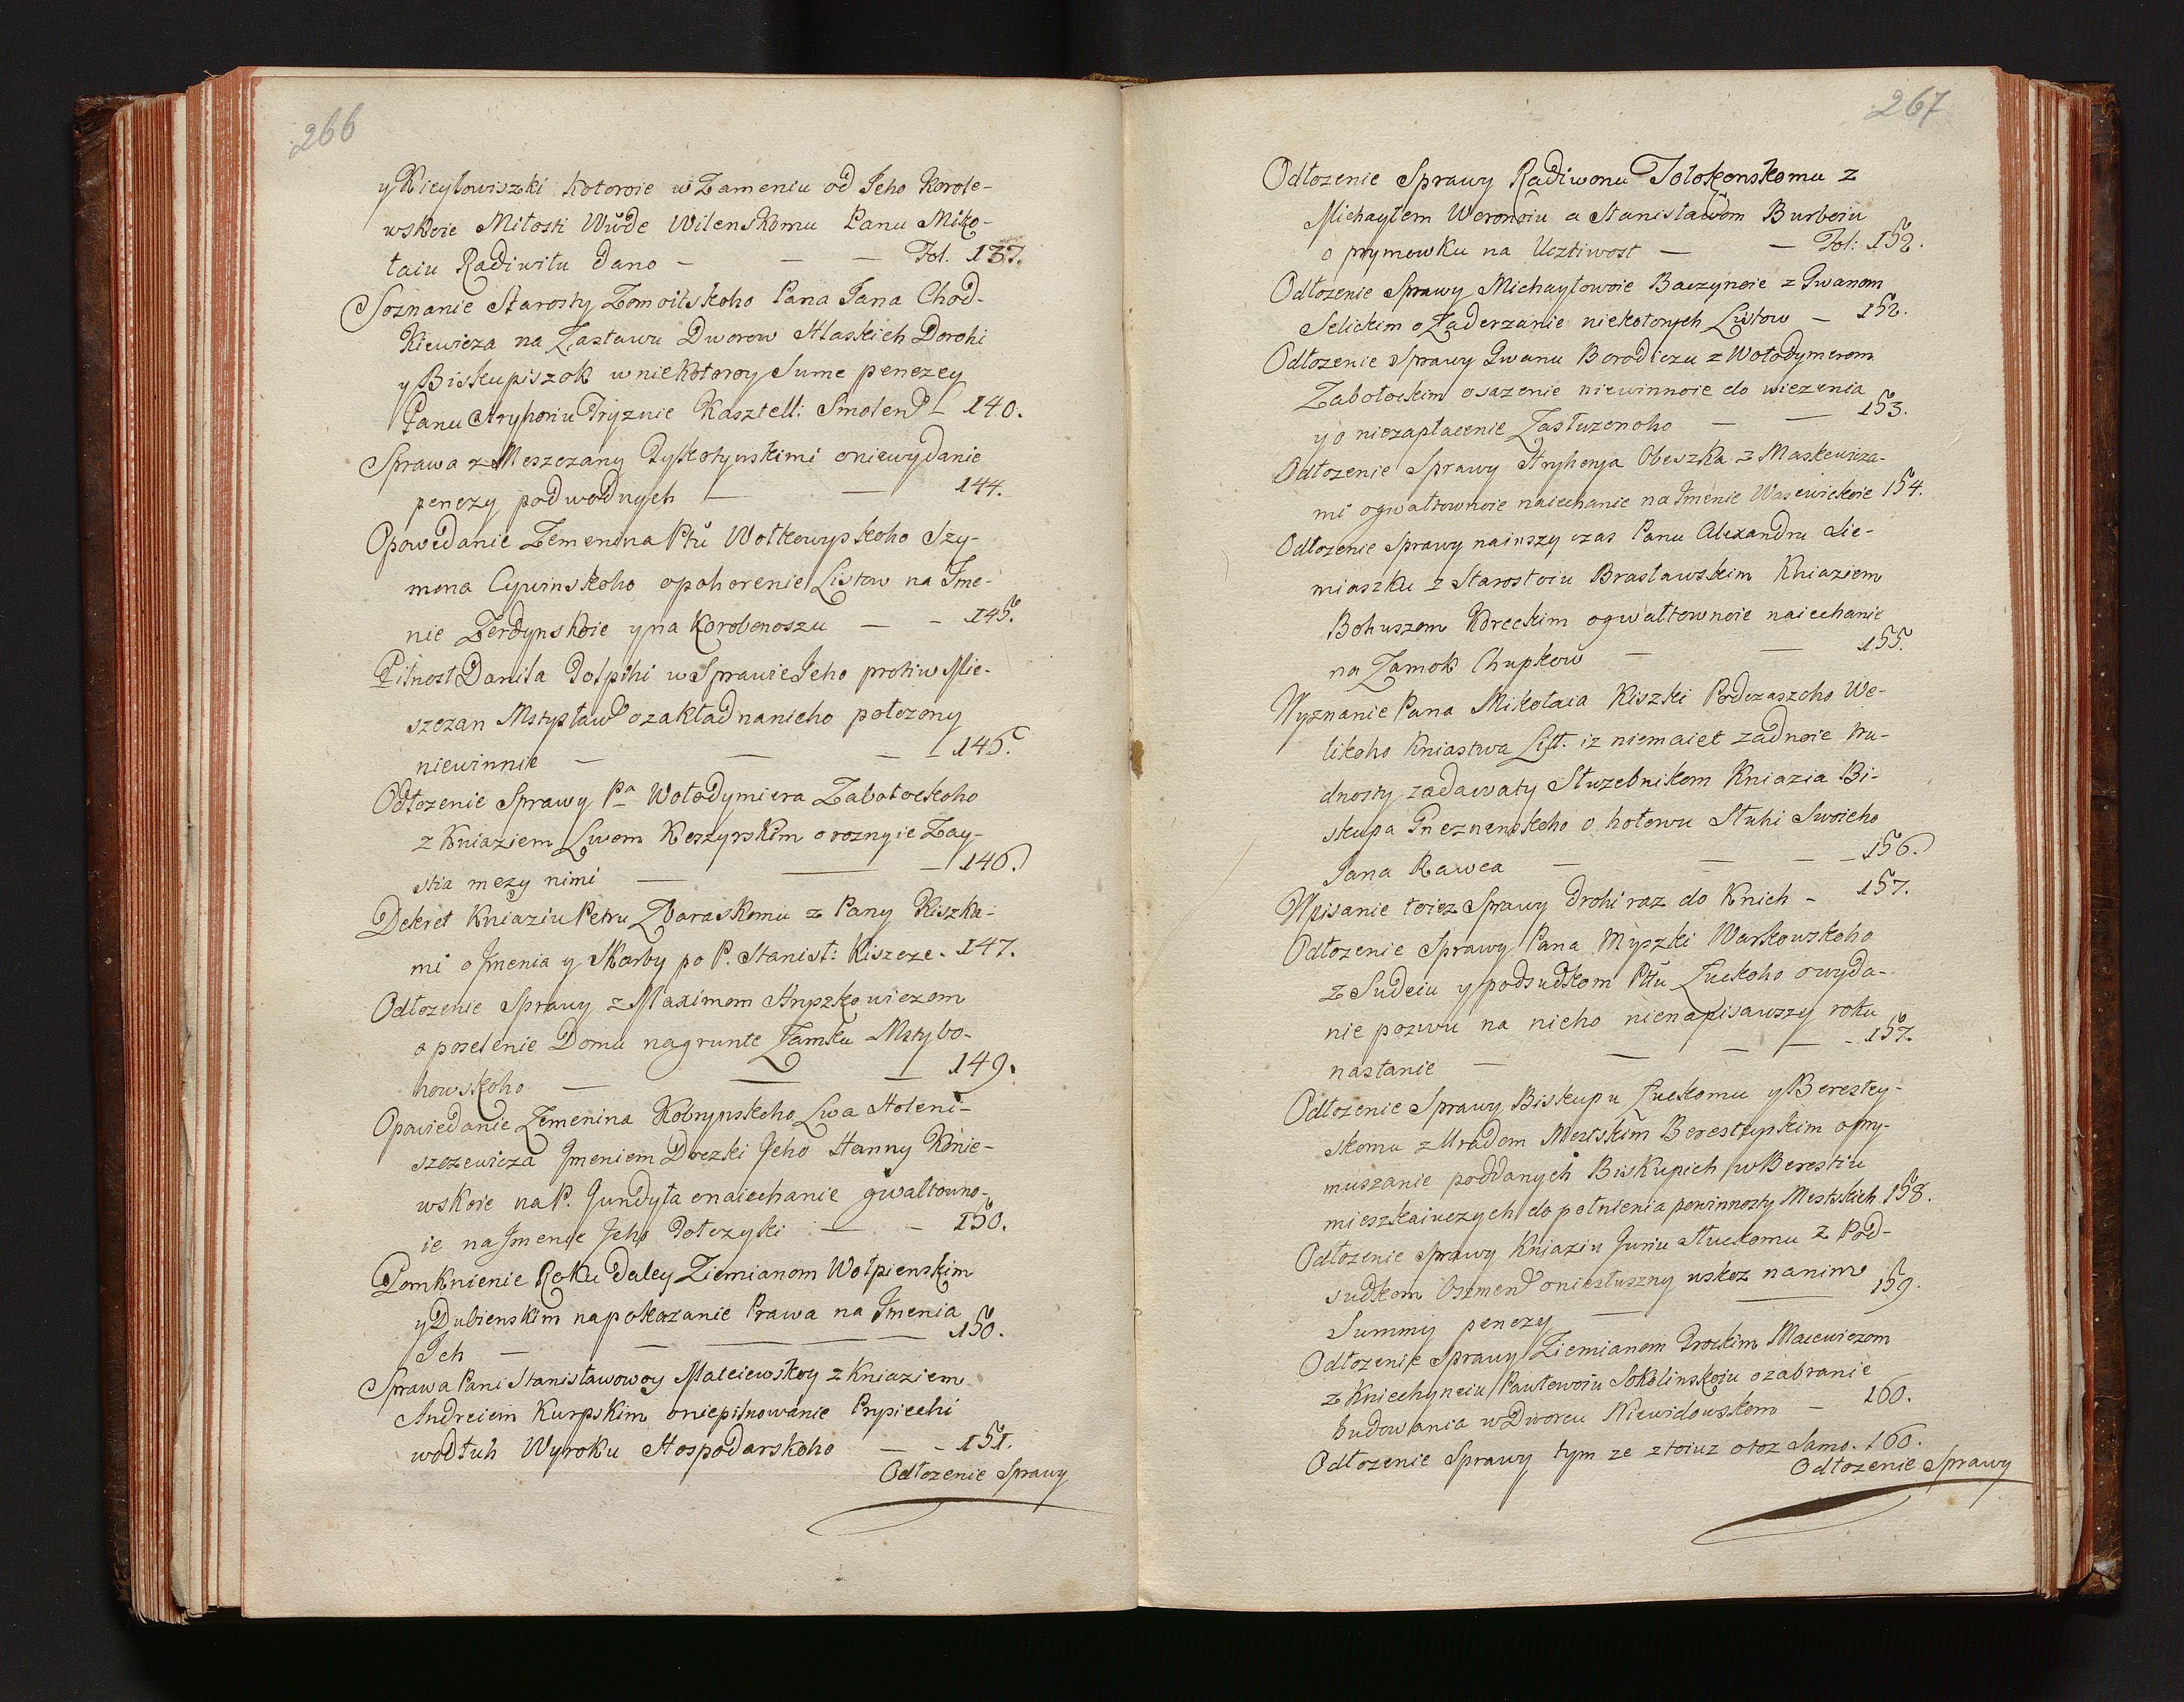 266
y Kieyłowiszki kotoroie w Zameniu od Jeho Korole-
wskoie Miłosti Wwde Wilenskomu Panu Miko-
łaiu Radiwiłu dano - - - Fol. 137.
Soznanie Starosty Zomoitskoho Pana Jana Chod-
kiewicza na Zastawu Dworow Hlaskich Dorohi
y Biskupiszok w niekotoroy Sume penezey
Panu Hryhoriu Tryznie Kasztell: Smolen. - 140.
Sprawa z Meszczany Tykotynskimi o niewydanie
penezy podwodnych - - 144.
Opowedanie Zemenina Ptu Wołkowyskoho Szy-
mona Cywinskoho o pohorenie Listow na Jme-
nie Zerdynskoie y na Korobonoszu - - 145.
Pilnost Daniła Tołpihi w Sprawie Jeho protiw Mie-
szczan Mstysław o zakład na nieho połozony
niewinnie - - - 146.
Odłozenie Sprawy Pa Wołodymiera Zabołockoho
z Kniaziem Lwom Koszyrskim o roznyie Zay-
stia mezy nimi - - - 146.
Dekret Kniaziu Petru Zbaraskomu z Pany Kiszka-
mi o Jmenia y Skarby po P. Stanisł: Kiszcze. 147.
Odłozenie Sprawy z Maximom Hryszkowiczom
o poselenie Domu na grunte Zamku Mstybo-
howskoho - - - 149.
Opowiedanie Zemenina Kobrynskoho Lwa Holeni-
szczewicza Jmeniem Doczki Jeho Hanny Konie-
wskoie na P. Gundyła o naiechanie gwałtowno-
ie na Jmenie Jeho Tołczyki - - 150.
Pomknienie Roku daley Ziemianom Wołpienskim
y Dubienskim na pokazanie Prawa na Jmenia
Ich - - - 150.
Sprawa Pani Stanisławowoy Maleiewskoy z Kniaziem
Andreiem Kurpskim o niepilnowanie Prysiehi
wodłuh Wyroku Hospodarskoho - - 151.
Odłozenie Sprawy
267
Odłozenie Sprawy Radiwonu Tołokonskomu z
Michayłem Woronoiu a Stanisławom Burboiu
o prymowku na Ucztiwost - - Fol: 152.
Odłozenie Sprawy Michayłowoie Baczynoie z Jwanom
Selickim o Zaderzanie niekotorych Listow - 152.
Odłozenie Sprawy Jwanu Borodiczu z Wołodymerom
Zabołockim o sazenie niewinnoie do wiezenia
y o niezapłacenie Zasłuzonoho - - 153.
Odłozenie Sprawy Hryhorya Obeszka z Maskewicza-
mi o gwałtownoie naiechanie na Jmenie Wasewickoie 154.
Odłozenie Sprawy na inszy czas Panu Alexandru Sie-
miaszku z Starostoiu Brasławskim Kniaziem
Bohuszom Koreckim o gwałtownoie naiechanie
na Zamok Chupkow - - 155.
Wyznanie Pana Mikołaia Kiszki Podczaszoho We-
likoho Kniastwa Lit. iz niemaiet zadnoie tru-
dnosty zadawaty Słuzebnikom Kniazia Bi-
skupa Gneznenskoho o hołowu Słuhi Swoieho
Jana Rawca - - - 156.
Wpisanie toiez Sprawy drohi raz do Knich - 157.
Odłozenie Sprawy Pana Myszki Warkowskoho
z Sudeiu y podsudkom Ptu Łuckoho o wyda-
nie pozwu na nieho nienapisawszy roku
nastanie - - - 157.
Odłozenie Sprawy Biskupu Łuckomu y Berestey-
skomu z Uradem Mestskim Berestyskim o pry-
muszanie poddanych Biskupich w Berestiu
mieszkaiuczych do połnienia powinnosty Mestskich. 158.
Odłozenie Sprawy Kniaziu Juriu Słuckomu z Pod-
sudkom Oszmen o niesłuszny uskoz na nim
Summy penezy - - 159.
Odłozenie Sprawy Ziemianom Trockim Macewiczom
z Kniehyneiu Pawłowoiu Sokolinskoiu o zabranie
budowania w Dworcu Niewidowskom - 160.
Odłozenie Sprawy tym ze z toiuz otoz Samo. 160.
Odłozenie Sprawy